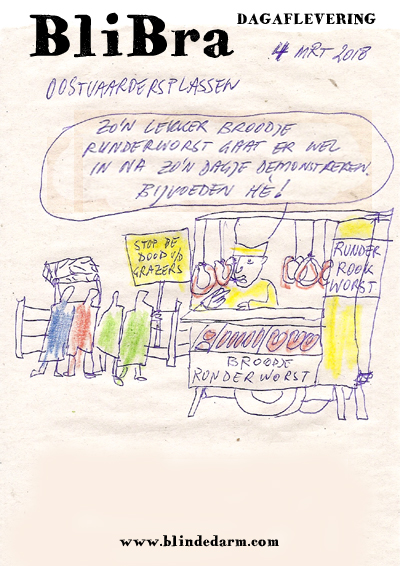 BliBra
DAGAFLEVERING
4 MRT 2018
OOSTVAARDERSPLASSEN
ZO'N LEKKER BROODJE
RUNDERWORST GAAT ER WEL
IN NA ZO'N DAGJE DEMONSTREREN.
BIJVOEDEN HÈ!
STOP DE
DOOD V/D
GRAZERS
RUNDER
ROOK
WORST
BROODJE
RUNDERWORST
www.blindedarm.com